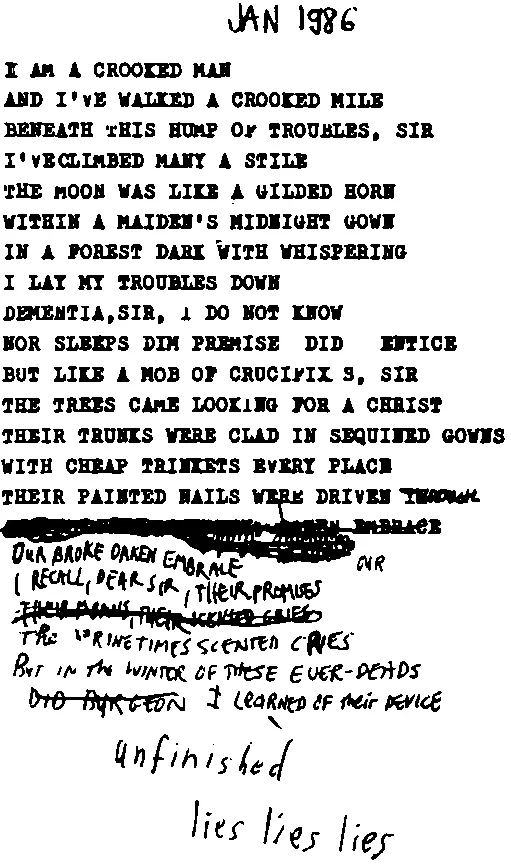 JAN 1986
I AM A CROOKED MAN
AND I'VE WALKED A CROOKED MILE
BENEATH THIS HUMP OF TROUBLES, SIR
I'VECLIMBED MANY A STILE
THE MOON WAS LIKE A GILDED HORN
WITHIN A MAIDEN'S MIDNIGHT GOWN
IN A FOREST DARK WITH WHISPERING
I LAY MY TROUBLES DOWN
DEMENTIA,SIR, I DO NOT KNOW
NOR SLEEPS DIM PREMISE DID ENTICE
BUT LIKE A MOB OF CRUCIFIX S, SIR
THE TREES CAME LOOKING FOR A CHRIST
THEIR TRUNKS WERE CLAD IN SEQUINED GOWNS
WITH CHEAP TRINKETS EVERY PLACE
THEIR PAINTED NAILS WERE DRIVEN THROUGH
EMBRACE
OUR BROKE OAKEN EMBRACE OUR
I RECALL, DEAR SIR, THEIR PROMISES
THEIR THEIR SCENTED CRIES
THE SCENTED CRIES
BUT IN THE WINTER OF THESE EVER-DEADS
DID BURGEON I LEARNED OF their DEVICE
unfinished
lies lies lies